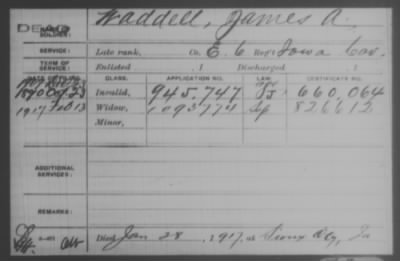 DEAD
NAME OF SOLDIER: Waddell, James A.
SERVICE: Late rank, Co. E, 6 Reg't Iowa Cav.
TERM OF SERVICE: Enlisted 1 Discharged 1
DATE OF FILING. CLASS. APPLICATION NO. LAW. CERTIFICATE NO.
1890 Oct 23 Invalid, 945.747 660,064
1917 Feb 13 Widow, 1093774 826612
Minor,
ADDITIONAL SERVICES:
REMARKS:
Died Jan 28, 1917, at Sioux City, Ia